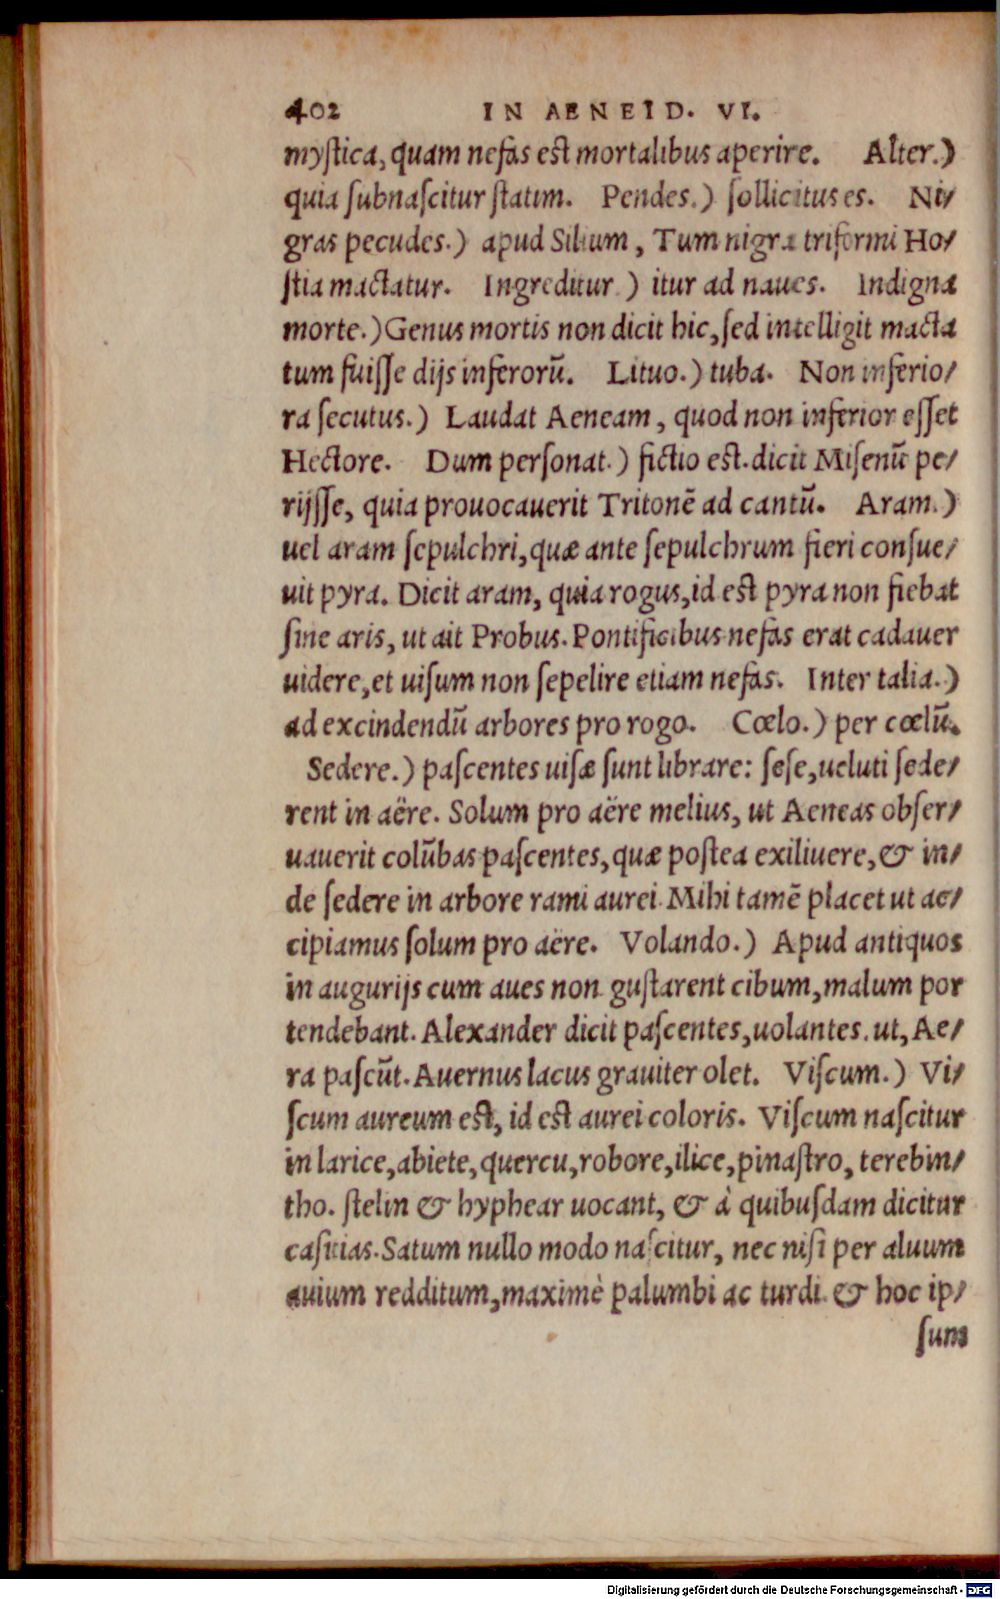 402 IN AENEID. VI.
myſtica, quam nefas est mortalibus aperire. Alter.)
quia ſubnaſcitur ſtatim. Pendes.) ſollicitus es. Ni/
gras pecudes.) apud Silium, Tum nigra triformi Ho/
ſtia mactatur. Ingreditur.) itur ad naues. Indigna
morte.) Genus mortis non dicit hic, ſed intelligit macta
tum fuiſſe dijs inferorū. Lituo.) tuba. Non inferio/
ra ſecutus.) Laudat Aeneam, quod non inferior eſſet
Hectore. Dum perſonat.) fictio est. dicit Miſenū pe/
rijſſe, quia prouocauerit Tritonē ad cantū. Aram.)
uel aram ſepulchri, quæ ante ſepulchrum fieri conſue/
uit pyra. Dicit aram, quia rogus, id est pyra non fiebat
ſine aris, ut ait Probus. Pontificibus nefas erat cadauer
uidere, et uiſum non ſepelire etiam nefas. Inter talia.)
ad excindendū arbores pro rogo. Cœlo.) per cœlū.
Sedere.) paſcentes uiſæ ſunt librare: ſeſe, ueluti ſede/
rent in aëre. Solum pro aëre melius, ut Aeneas obſer/
uauerit colūbas paſcentes, quæ poſtea exiliuere, & in/
de ſedere in arbore rami aurei. Mihi tamē placet ut ac/
cipiamus ſolum pro aëre. Volando.) Apud antiquos
in augurijs cum aues non guſtarent cibum, malum por
tendebant. Alexander dicit paſcentes, uolantes. ut, Ae/
ra paſcūt. Auernus lacus grauiter olet. Viſcum.) Vi/
ſcum aureum est, id est aurei coloris. Viſcum naſcitur
in larice, abiete, quercu, robore, ilice, pinaſtro, terebin/
tho. ſtelin & hyphear uocant, & à quibuſdam dicitur
caſitias. Satum nullo modo naſcitur, nec niſi per aluum
auium redditum, maximè palumbi ac turdi. & hoc ip/
ſum
Digitalisierung gefördert durch die Deutsche Forschungsgemeinschaft - DFG